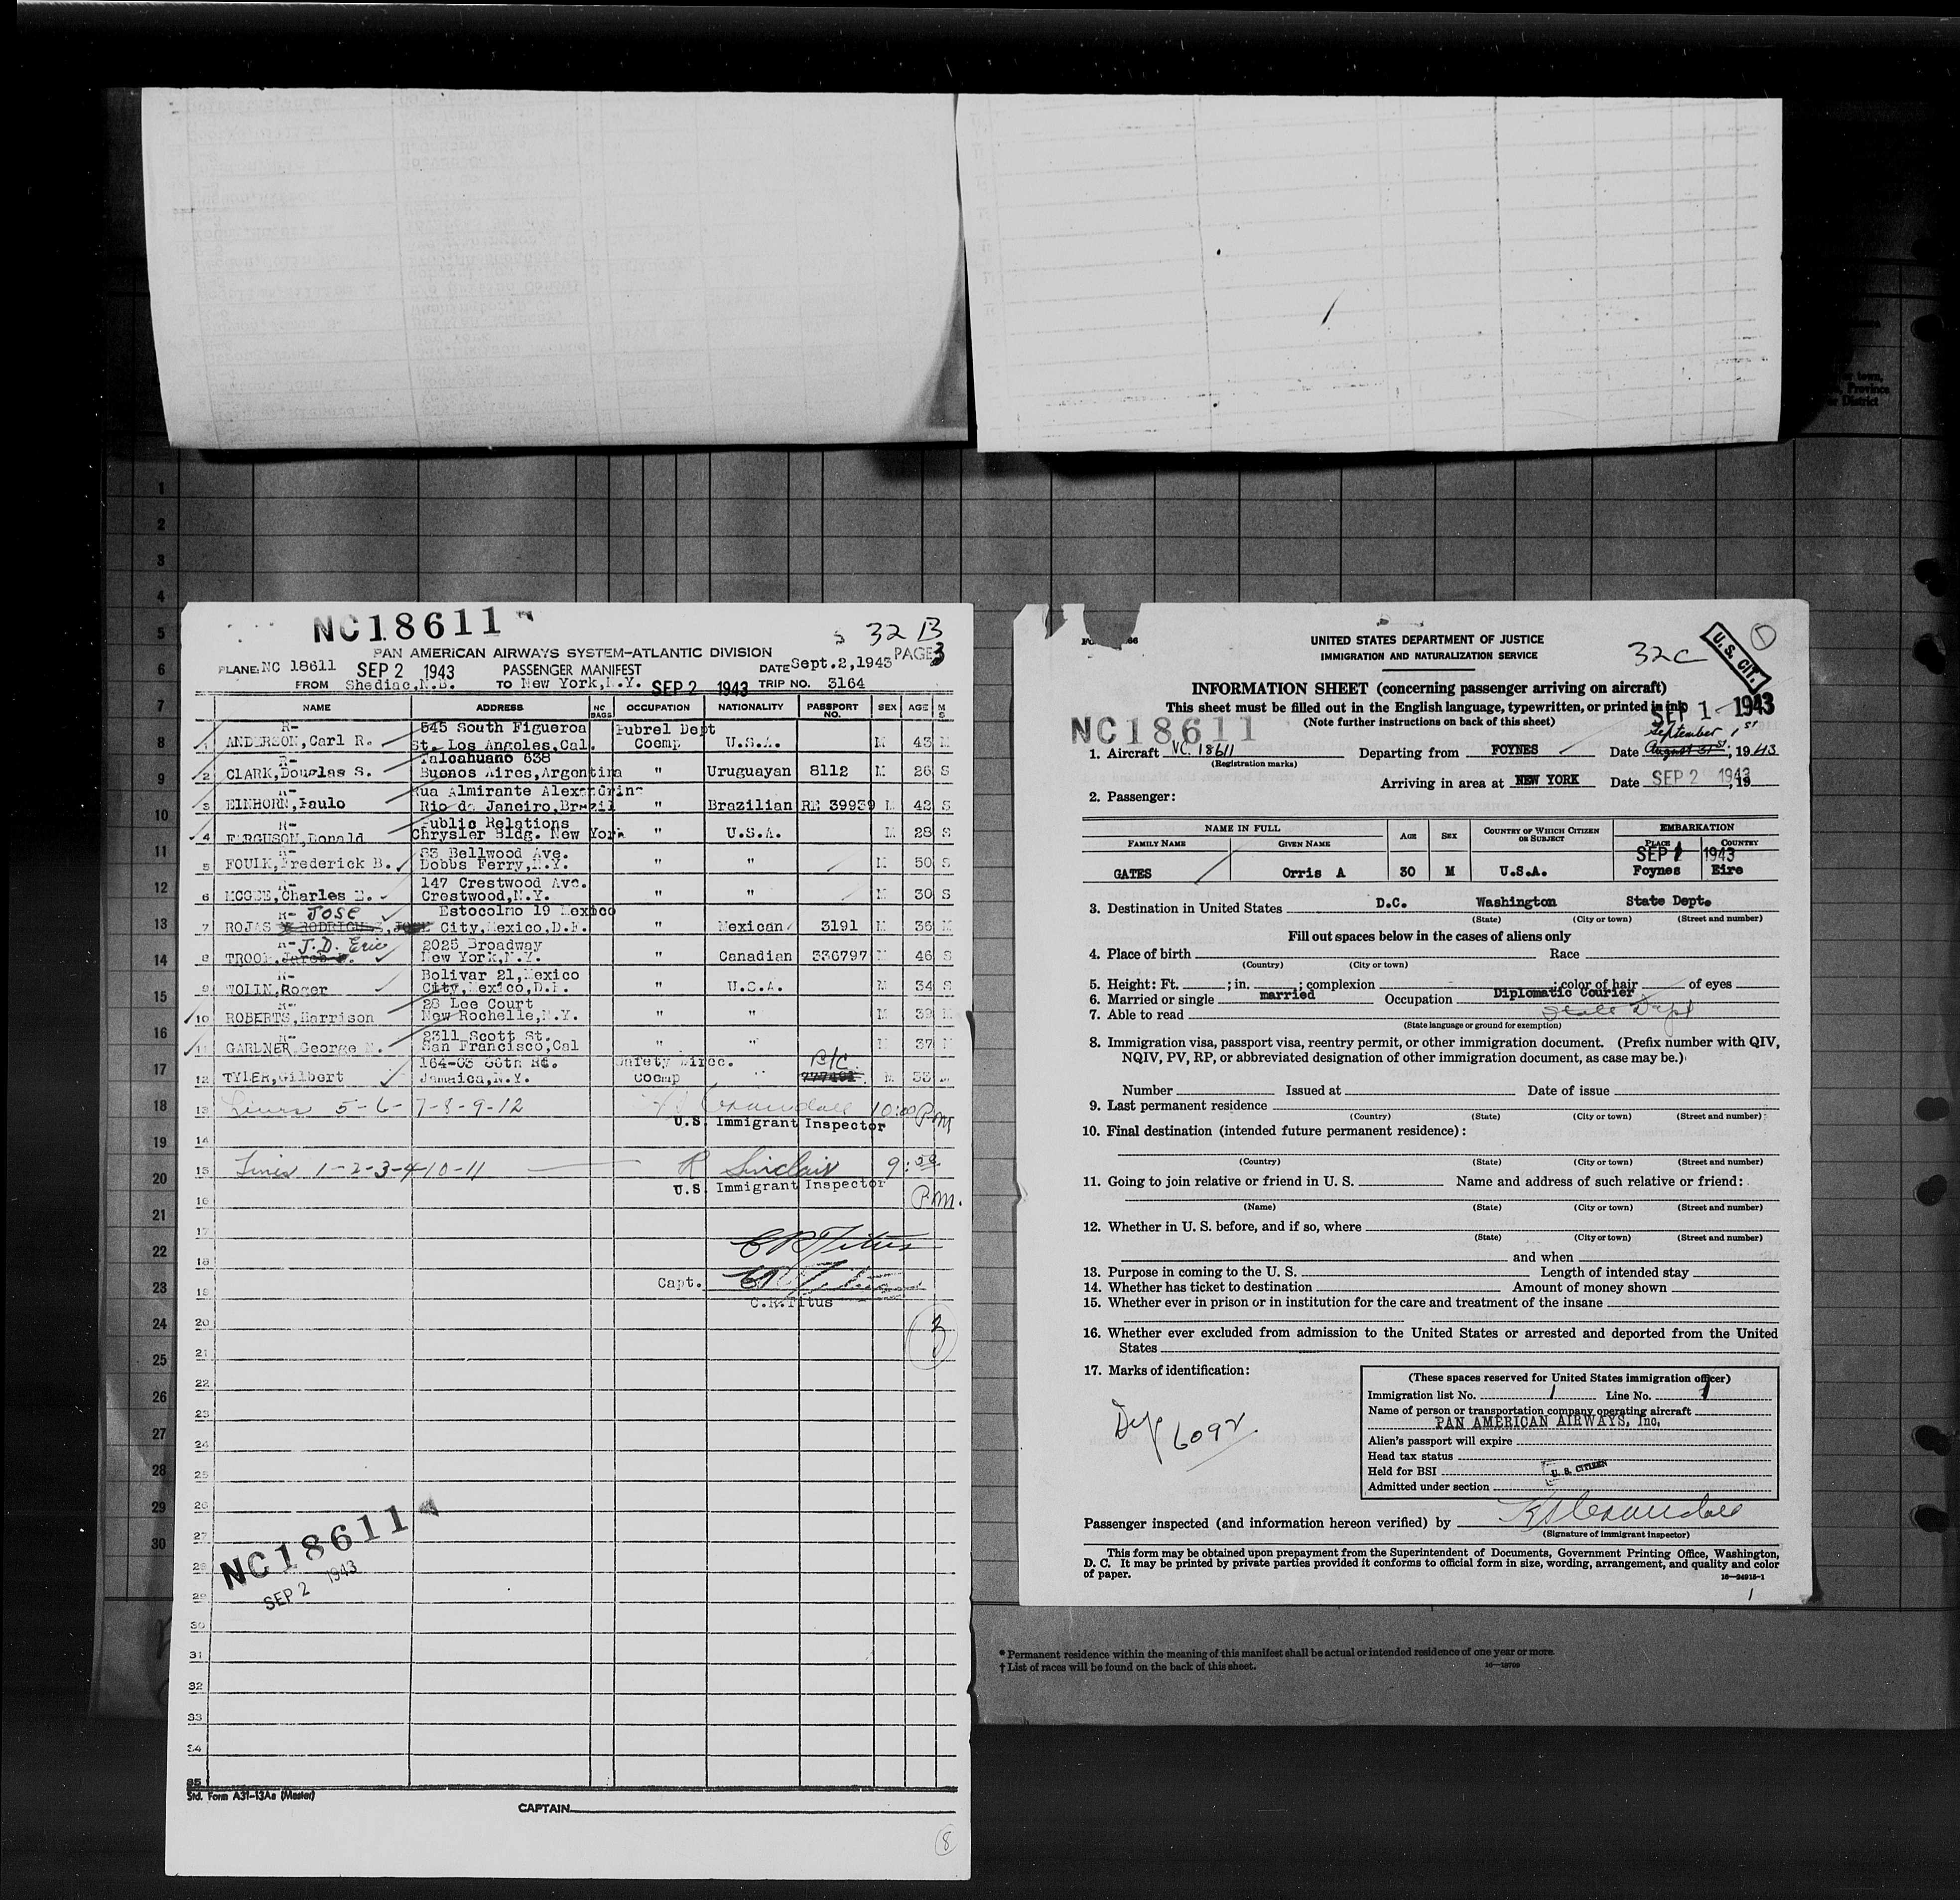 NC18611
32 B
PAN AMERICAN AIRWAYS SYSTEM-ATLANTIC DIVISION PAGE 3
PLANE: NC 18611 SEP 2 1943 PASSENGER MANIFEST DATE Sept.2,1943
FROM Shediac,N.B. TO New York,N.Y. SEP 2 1943 TRIP NO. 3164
NAME ADDRESS NO BAGS OCCUPATION NATIONALITY PASSPORT NO. SEX AGE M S
R- 545 South Figueroa Pubrel Dept
1 ANDERSON,Carl R. St. Los Angeles,Cal. Cocmp U.S.A. M 43 M
R- Talcahuano 638
2 CLARK,Douglas S. Buenos Aires,Argentina " Uruguayan 8112 M 26 S
R- Rua Almirante Alexandrino
3 EINHORN,Paulo Rio de Janeiro,Brazil " Brazilian RE 39939 M 42 S
R- Public Relations
4 FERGUSON,Donald Chrysler Bldg. New York " U.S.A. M 28 S
R- 83 Bellwood Ave.
5 FOULK,Frederick B. Dobbs Ferry,N.Y. " " M 50 S
R- 147 Crestwood Ave.
6 MCGEE,Charles E. Crestwood,N.Y. " " M 30 S
R- JOSE Estocolmo 19 Mexico
7 ROJAS City,Mexico,D.F. " Mexican 3191 M 36 M
R- J.D. Eric 2025 Broadway
8 TROOP, New York,N.Y. " Canadian 336797 M 46 S
R- Bolivar 21,Mexico
9 TOLIN,Roger City,Mexico,D.F. " U.S.A. M 34 S
R- 28 Lee Court
10 ROBERTS,Harrison New Rochelle,N.Y. " " M 39 M
R- 2311 Scott St.
11 GARDNER,George N. San Francisco,Cal " " M 37 M
164-03 Rd. Safety Direc. B/C
12 TYLER,Gilbert Jamaica,N.Y. cocmp 777491 M 33 M
13 Lines 5-6-7-8-9-12 Crandall 10:00 PM
U.S. Immigrant Inspector
14
15 Lines 1-2-3-4-10-11 R Sinclair 9:50
U.S. Immigrant Inspector P.M.
16
17 C R Titus
18 Capt. C R Titus
19 C.R.Titus
20 3
21
22
23
24
25
26
27
NC18611
28
SEP 2 1943
29
30
31
32
33
34
35
Std. Form A31-13Aa (Master)
CAPTAIN
8
1
2
3
4
5
6
7
8
9
10
11
12
13
14
15
16
17
18
19
20
21
22
23
24
25
26
27
28
29
30
UNITED STATES DEPARTMENT OF JUSTICE
IMMIGRATION AND NATURALIZATION SERVICE
32C
U.S. CIT.
INFORMATION SHEET (concerning passenger arriving on aircraft)
This sheet must be filled out in the English language, typewritten, or printed in ink
(Note further instructions on back of this sheet)
NC18611
SEP 1 - 1943
September 1st
1. Aircraft NC. 18611 Departing from FOYNES Date August 31st, 1943
(Registration marks)
Arriving in area at NEW YORK Date SEP 2 1943, 19
2. Passenger:
NAME IN FULL AGE SEX COUNTRY OF WHICH CITIZEN OR SUBJECT EMBARKATION
FAMILY NAME GIVEN NAME PLACE COUNTRY
SEP 1 1943
GATES Orris A 30 M U.S.A. Foynes Eire
3. Destination in United States D.C. Washington State Dept.
(State) (City or town) (Street and number)
Fill out spaces below in the cases of aliens only
4. Place of birth Race
(Country) (City or town)
5. Height: Ft. ; in. ; complexion ; color of hair of eyes
6. Married or single married Occupation Diplomatic Courier
7. Able to read State Dept
(State language or ground for exemption)
8. Immigration visa, passport visa, reentry permit, or other immigration document. (Prefix number with QIV,
NQIV, PV, RP, or abbreviated designation of other immigration document, as case may be.)
Number Issued at Date of issue
9. Last permanent residence
(Country) (State) (City or town) (Street and number)
10. Final destination (intended future permanent residence):
(Country) (State) (City or town) (Street and number)
11. Going to join relative or friend in U. S. Name and address of such relative or friend:
(Name) (State) (City or town) (Street and number)
12. Whether in U. S. before, and if so, where
(State) (City or town) (Street and number)
and when
13. Purpose in coming to the U. S. Length of intended stay
14. Whether has ticket to destination Amount of money shown
15. Whether ever in prison or in institution for the care and treatment of the insane
16. Whether ever excluded from admission to the United States or arrested and deported from the United
States
17. Marks of identification:
Dip 6092
(These spaces reserved for United States immigration officer)
Immigration list No. 1 Line No. 1
Name of person or transportation company operating aircraft
PAN AMERICAN AIRWAYS, Inc.
Alien's passport will expire
Head tax status
Held for BSI U. S. CITIZEN
Admitted under section
Passenger inspected (and information hereon verified) by Crandall
(Signature of immigrant inspector)
This form may be obtained upon prepayment from the Superintendent of Documents, Government Printing Office, Washington,
D. C. It may be printed by private parties provided it conforms to official form in size, wording, arrangement, and quality and color
of paper.
16-24915-1
1
* Permanent residence within the meaning of this manifest shall be actual or intended residence of one year or more.
† List of races will be found on the back of this sheet.
16-18709
or town,
Province
or District